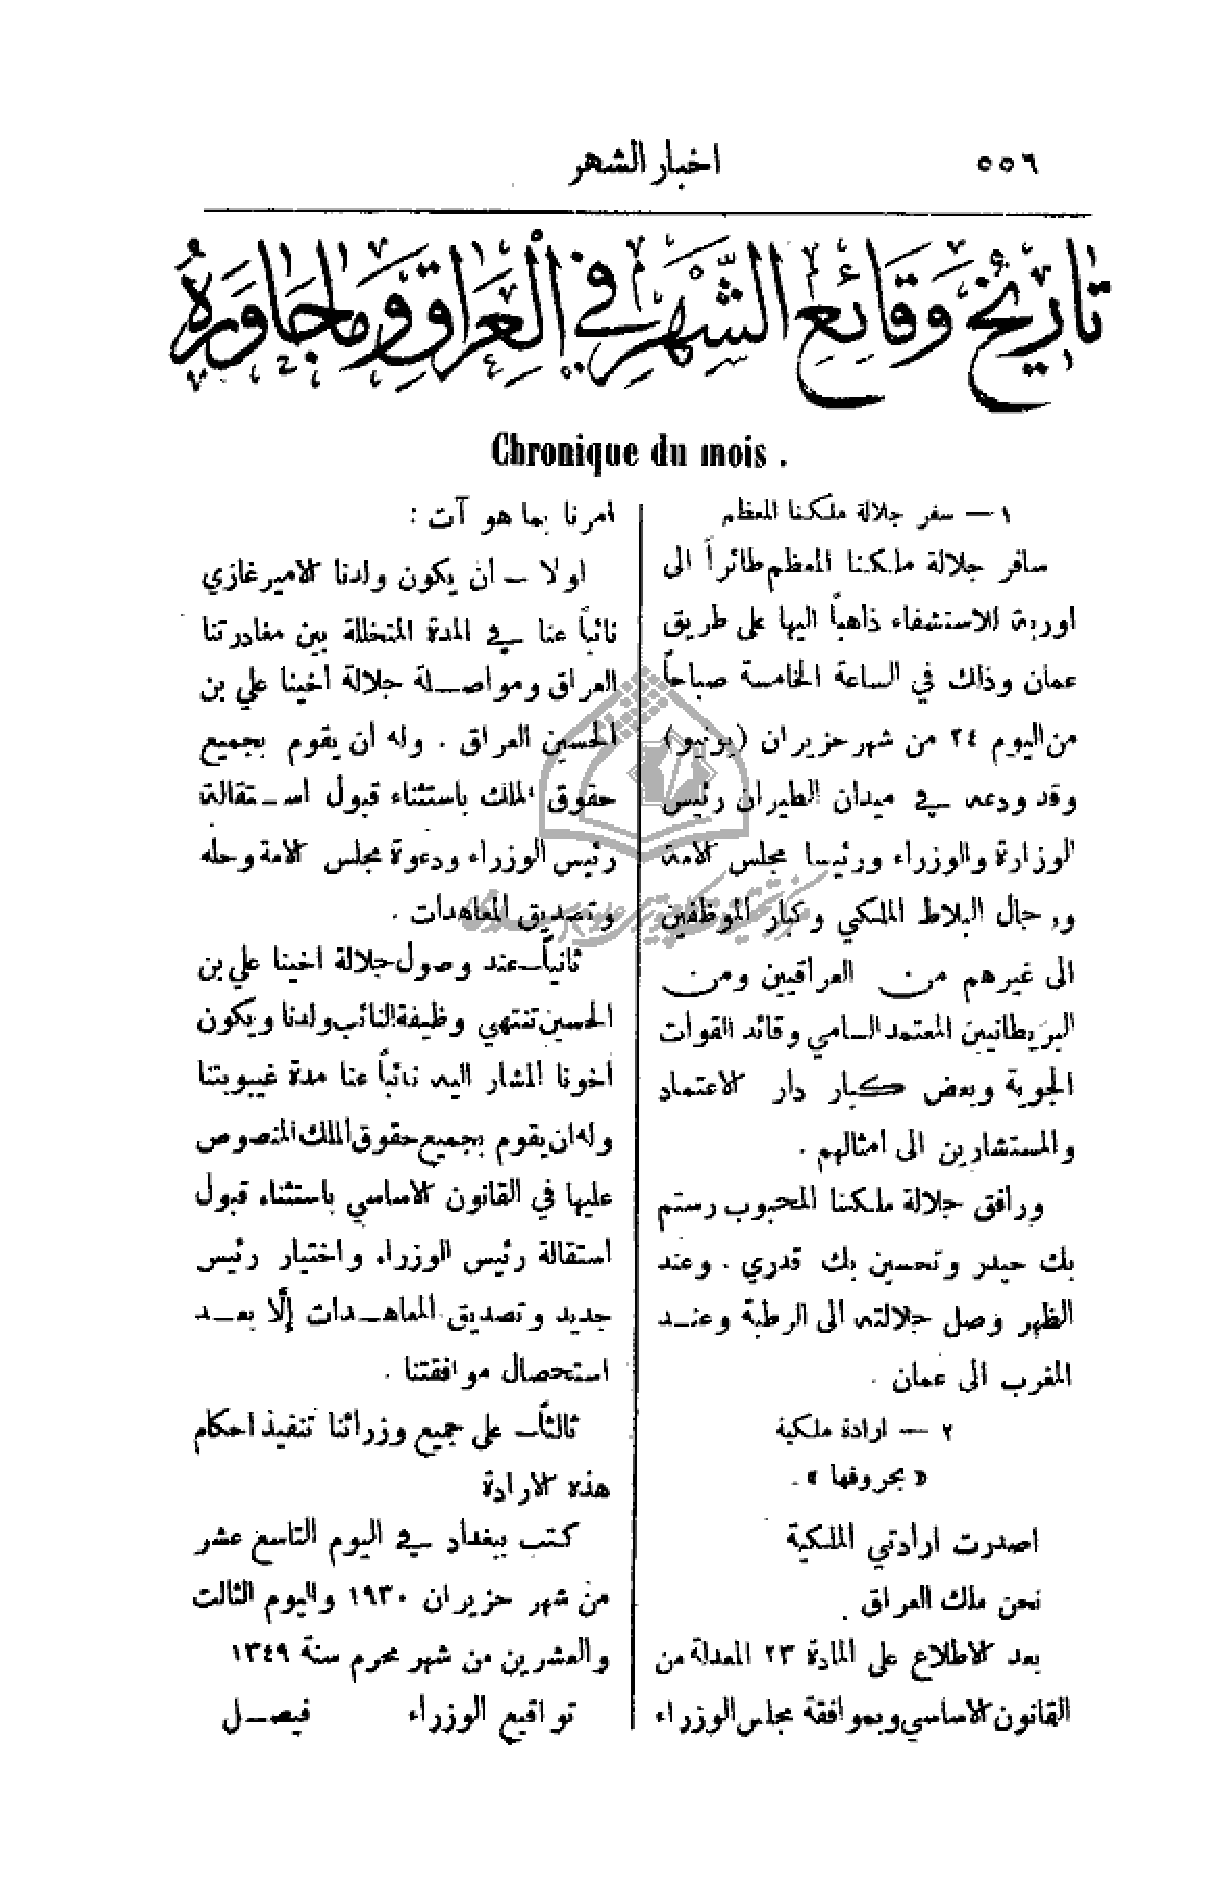 ٥٥٦
اخبار الشهر
تاريخ وقائع الشهر في العراق وما جاوره
Chronique du mois .
١ — سفر جلالة ملكنا المعظم
سافر جلالة ملكنا المعظم طائراً الى
اوربة للاستشفاء ذاهباً اليها على طريق
عمان وذلك في الساعة الخامسة صباحاً
من اليوم ٢٤ من شهر حزيران (يونيو)
وقد ودعه في ميدان الطيران رئيس
الوزارة والوزراء ورئيسا مجلس الامة
ورجال البلاط الملكي وكبار الموظفين
الى غيرهم من العراقيين ومن
البريطانيين المعتمد السامي وقائد القوات
الجوية وبعض كبار دار الاعتماد
والمستشارين الى امثالهم .
ورافق جلالة ملكنا المحبوب رستم
بك حيدر وتحسين بك قدري . وعند
الظهر وصل جلالته الى الرطبة وعند
المغرب الى عمان .
٢ — ارادة ملكية
« بحروفها » .
اصدرت ارادتي الملكية
نحن ملك العراق .
بعد الاطلاع على المادة ٢٣ المعدلة من
القانون الاساسي وبموافقة مجلس الوزراء
امرنا بما هو آت :
اولا — أن يكون ولدنا الامير غازي
نائباً عنا في المدة المتخللة بين مغادرتنا
العراق ومواصلة جلالة أخينا علي بن
الحسين العراق . وله ان يقوم بجميع
حقوق الملك باستثناء قبول استقالة
رئيس الوزراء ودعوة مجلس الامة وحله
وتصديق المعاهدات .
ثانياً — عند وصول جلالة اخينا علي بن
الحسين تنتهي وظيفة النائب ولدنا ويكون
أخونا المشار اليه نائباً عنا مدة غيبوبتنا
وله ان يقوم بجميع حقوق الملك المنصوص
عليها في القانون الاساسي باستثناء قبول
استقالة رئيس الوزراء واختيار رئيس
جديد وتصديق المعاهدات إلّا بعد
استحصال موافقتنا .
ثالثاً — على جميع وزرائنا تنفيذ احكام
هذه الارادة
كتب ببغداد في اليوم التاسع عشر
من شهر حزيران ١٩٣٠ واليوم الثالث
والعشرين من شهر محرم سنة ١٣٤٩
تواقيع الوزراء فيصل